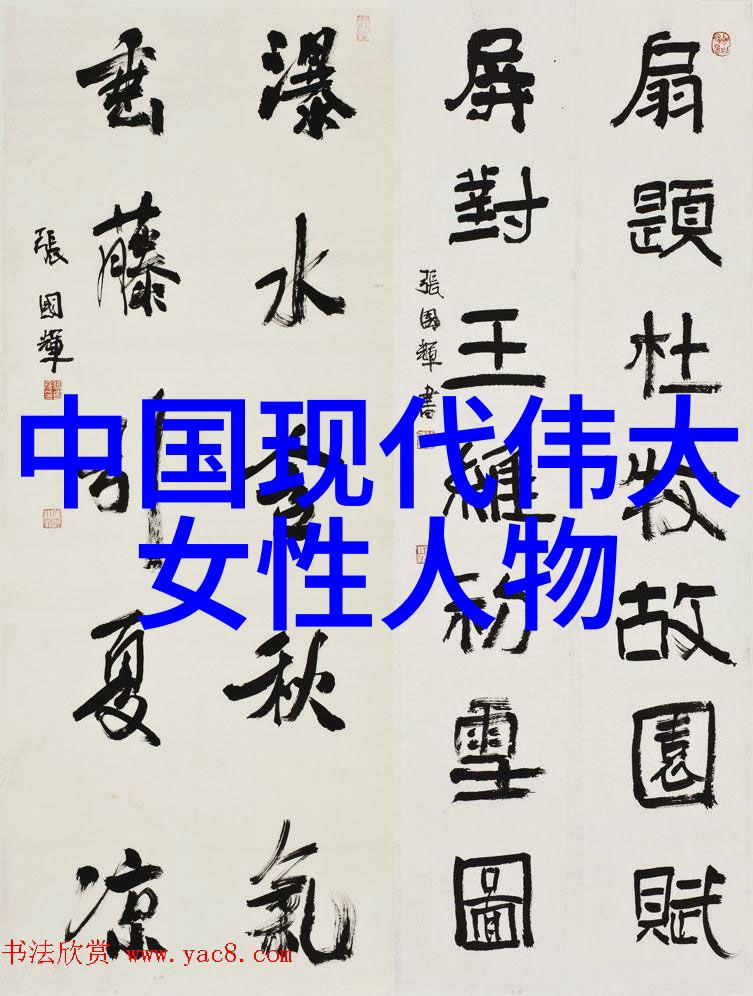 扇題杜牧故園賦
屏對王維初雪圖
張國輝書
瀑水含秋氣
垂藤引夏凉
張國輝
中国现代伟大
女性人物
书法欣赏 www.yac8.com